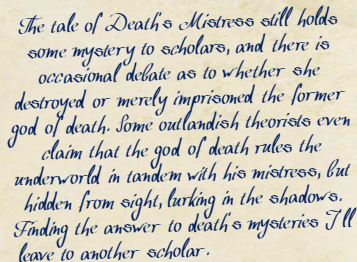 The tale of Death's Mistress still holds
some mystery to scholars, and there is
occasional debate as to whether she
destroyed or merely imprisoned the former
god of death. Some outlandish theorists even
claim that the god of death rules the
underworld in tandem with his mistress, but
hidden from sight, lurking in the shadows.
Finding the answer to death's mysteries I'll
leave to another scholar.